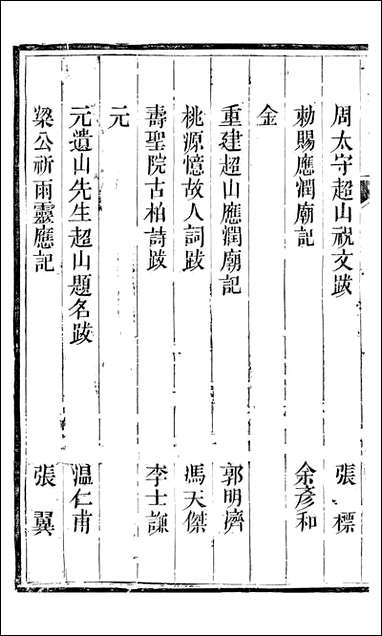 周太守超山祝文跋　張標
勑賜應潤廟記　余彥和
金
重建超山應潤廟記　郭明濟
桃源憶故人詞跋　馮天傑
壽聖院古柏詩跋　李士謙
元
元遺山先生超山題名跋　溫仁甫
梁公祈雨靈應記　張翼